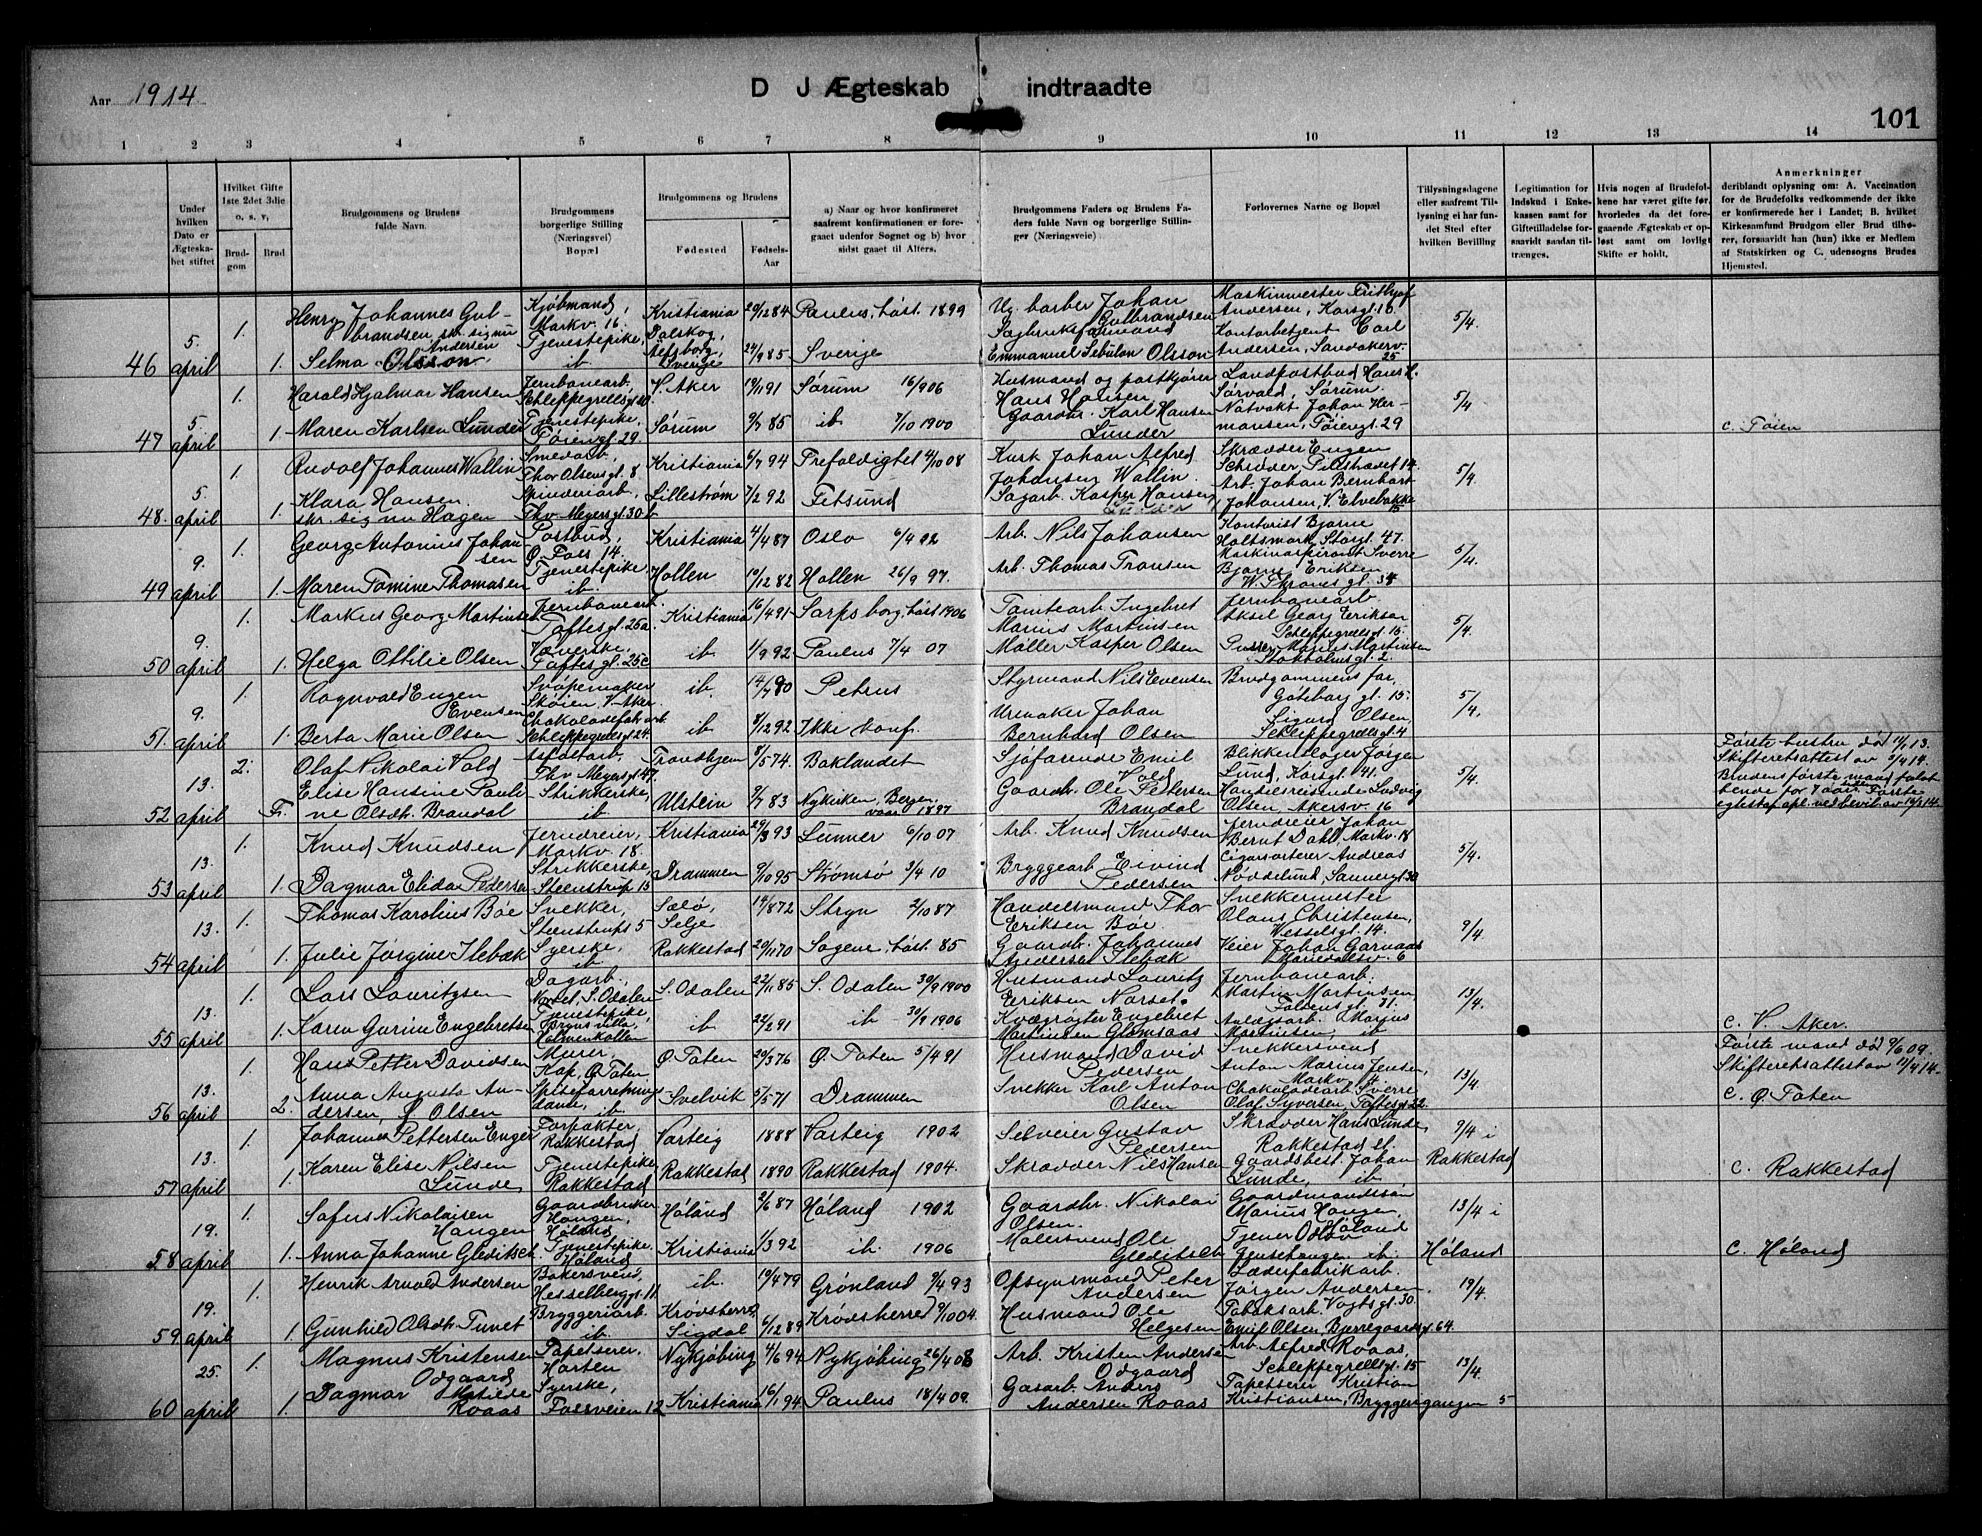 Aar 1914
D J Ægteskab indtraadte
101
1 2 3 4 5 6 7 8 9 10 11 12 13 14
Under hvilken Dato er Ægteska- bet stiftet
Hvilket Gifte 1ste 2det 3die o. s. v.
Brud- gom
Brud
Brudgommens og Brudens fulde Navn.
Brudgommens borgerlige Stilling (Næringsvei) Bopæl
Brudgommens og Brudens
Fødested
Fødsels- Aar
a) Naar og hvor konfirmeret saafremt konfirmationen er fore- gaaet udenfor Sognet og b) hvor sidst gaaet til Alters.
Brudgommens Faders og Brudens Fa- ders fulde Navn og borgerlige Stillin- ger (Næringsveie)
Forlovernes Navne og Bopæl
Tillysningsdagene eller saafremt Til- lysning ei har fun- det Sted efter hvilken Bevilling
Legitimation for Indskud i Enke- kassen samt for Giftetilladelse for- saavidt saadan til- trænges.
Hvis nogen af Brudefol- kene har været gifte før, hvorledes da det fore- gaaende Ægteskab er op- løst samt om lovligt Skifte er holdt.
Anmerkninger deriblandt oplysning om: A. Vaccination for de Brudefolks vedkommende der ikke er konfirmerede her i Landet; B. hvilket Kirkesamfund Brudgom eller Brud tilhø- rer, forsaavidt han (hun) ikke er Medlem af Statskirken og C. udensogns Brudes Hjemsted.
46 5. april 1. Henry Johannes Gul- brandsen, skr. sig nu Andersen Kjøbmand, Markv. 16. Kristiania 29/12 84 Paulus, høst 1899 Ug. barber Johan Gulbrandsen Maskinmester Frithjof Andersen, Korsgt. 16. 5/4.
1. Selma Olsson Tjenestepike, ib Dalskog, Aelfsborg, Sverige 24/9 85 Sverige Sagbruksformand Emmanuel Sebulon Olsson Kontorbetjent Carl Andersen, Sandakerv. 25
47 5 april 1. Harald Hjalmar Hansen Jernbanearb, Schleppegrellsgt 10 V. Aker 19/1 91 Sørum 16/9 06 Husmand og postkjører Hans Hansen Landpostbud Hans H. Sørvald, Sørum. 5/4.
1. Maren Karlsen Lunder Tjenestepike, Tøiengt. 29 Sørum 9/7 85 ib 7/10 1900 Gaardbr. Karl Hansen Lunder Natvakt Johan Her- mansen, Tøiengt. 29 c. Tøien
48. 5. april 1. Rudolf Johannes Wallin Smedarb, Thor Olsens gt. 8 Kristiania 6/7 94 Trefoldighet 4/10 08 Kusk Johan Alfred Johansen Wallin Skrædder Eugen Schrøder, Pilestrædet 14. 5/4.
1. Klara Hansen. skr. sig nu Hagen Spinderiarb, Thv. Meyersgt. 30 b Lillestrøm 7/2 92 Fetsund Sagarb. Kasper Hansen, Lunder Arb. Johan Bernhart Johansen, V. Elvebakke 15
49 9. april 1. Georg Antonius Johan- sen Postbud, Ø. Foss 14. Kristiania 4/4 87 Oslo 6/4 92 Arb. Nils Johansen Kontorist Bjarne Holtsmark, Storgt. 47. 5/4.
1. Maren Tomine Thomasen Tjenestepike, ib. Hollen 19/12 82 Hollen 26/9 97. Arb. Thomas Transen Maskinaspirant Sverre Bjarne Eriksen W. Thranes gt. 34
50 9. april 1. Markus Georg Martinsen Jernbanearb. Toftesgt. 25a. Kristiania 16/4 91 Sarpsborg, høst 1906 Tomtearb. Ingebret Marius Martinsen Jernbanearb. Aksel Georg Eriksen Schleppegrellsgt. 15. 5/4.
1. Helga Ottilie Olsen Væverske, Toftes gt. 25c ib 1/9 92 Paulus 7/4 07 Møller Kasper Olsen Pusser Marius Martinsen Stokholmsgt. 2.
51. 9. april 1. Ragnvald Eugen Evensen Svøpemaker Skøien, V. Aker ib. 14/7 90 Petrus Styrmand Nils Evensen Brudgommens far, Göteborg gt. 15. 5/4.
1. Berta Marie Olsen Chokoladefabr.arb Schleppegrellsgt. 24. ib 8/12 92 Ikke konf. Urmaker Johan Bernhard Olsen Sigurd Olsen, Schleppegrellsgt. 4
52 13. april 2. Olaf Nikolai Vold Asfaltarb, Thv. Meyersgt. 47. Trondhjem 8/5 74. Baklandet Sjøfarende Emil Vold Blikkenslager Jørgen Lund, Korsgt. 41. 5/4. Første hustru død 11/1 13. Skifteretsattest av 3/4 14.
Fr. Elise Hansine Pauli- ne Olsdtr. Brandal Strikkerske, ib Ulstein 9/7 83 Nykirken, Bergen, vaar 1897 Gaardbr. Ole Pettersen Brandal Handelsreisende Ludvig Olsen, Akersv. 16 Brudens første mand forlot bende for 7 aar siden. Første egtesk. opl. ved bevil. av 16/3 14.
53 13. april 1. Knud Knudsen Jerndreier, Markv. 18. Kristiania 29/3 93 Lunner 6/10 07 Arb. Knud Knudsen Jerndreier Johan Bernt Dahl, Markv. 18 5/4.
1. Dagmar Elida Pedersen Strikkerske, Steenstrups 15 Drammen 9/10 95 Strømsø 3/4 10 Bryggearb. Eivind Pedersen Cigarsorterer Andreas Noddelund, Sannergt. 30
54 13. april 1. Thomas Karolius Bøe Snekker, Steenstrups 5 Salø, Selje 14/8 72 Stryn 2/10 87 Handelsmand Thor Eriksen Bøe. Snekkermester Olaus Christensen, Wesselsgt. 14. 9/4.
1. Julie Jørgine Ilebæk Syerske, ib Rakkestad 20/1 70 Sagene, høst 85 Gaardbr. Johannes Andersen Ilebæk Veier Johan Garnaas Mariedalsv. 6
55 13. april 1. Lars Lauritzen Dagarb. Norset, S. Odalen S. Odalen 22/11 85 S. Odalen 30/9 1900 Husmand Lauritz Eriksen Norset. Jernbanearb. Martin Martinsen, Falbens gt. 31. 13/4.
1. Karen Gurine Engebretsen Tjenestepike, Bryns villa, Holmenkollen ib 22/2 91 ib 30/9 1906 Kvægrøgter Engebret Martinsen Glomsaas Anlægsarb. Marius Martinsen, ib C. V. Aker.
56 13. april 1. Hans Petter Davidsen Murer, Kap, Ø. Toten Ø. Toten 20/3 76 Ø. Toten 5/4 91 Husmand David Pedersen Snekkersvend Anton Marius Jensen, Markv. 4. 13/4. Første mand død 9/6 09. Skifteretsattest av 11/4 14.
2. Anna Augusta An- dersen, f. Olsen Spiseforretning- drivende, ib. Svelvik 5/5 71 Drammen Snekker Karl Anton Olsen Chokoladearb. Sverre Olaf Syversen, Toftesgt. 22. C. Ø. Toten
57 13. april 1. Johannes Pettersen Enger Forpakter, Rakkestad Varteig 1888 Varteig 1902 Selveier Gustav Pedersen Skrædder Hans Lunde, Rakkestad st. 9/4 i Rakkestad
1 Karen Elise Nilsen Lunde Tjenestepike Rakkestad Rakkestad 1890 Rakkestad 1904. Skrædder Nils Hansen Gaardsbest. Johan Lunde, ib C. Rakkestad
58 19. april 1. Sofus Nikolaisen Haugen Gaardbruker Haugen, Høland Høland 2/6 87 Høland 1902 Gaardbr. Nikolai Olsen. Gaardmandssøn Marius Haugen, Høland 13/4 i Høland
1. Anna Johanne Gleditsch Tjenestepike. Høland Kristiania 1/3 92 ib. 1906 Malersvend Ole Gleditsch Tjener Oskar Jensehaugen, ib. C. Høland
59 19. april 1. Henrik Arnold Andersen Bakersvend, Hesselberggt. 11 ib. 19/4 79 Grønland 9/4 93 Opsynsmand Peter Andersen Læderfabrikarb. Jørgen Andersen 19/4.
1. Gunhild Olsdtr. Tunet Bryggeriarb. ib Krødsherred, Sigdal 6/12 89 Krødsherred 9/10 04. Husmand Ole Helgesen Tobaksarb. Vogtsgt. 30. Emil Olsen, Bjerregaardsgt. 64.
60 25. april 1. Magnus Kristensen Odgaard Tapetserer, Horten Nykjøbing 4/6 94 Nykjøbing 26/4 08 Arb. Kristen Andersen Odgaard Arb. Alfred Roaas, Schleppegrellsgt. 15 13/4.
1. Dagmar Matilde Roaas Syerske, Fossveien 12 Kristiania 16/1 94 Paulus 18/4 09. Gasarb. Anders Andersen Roaas Tapetserer Kristian Kristiansen, Bryggerigangen 5